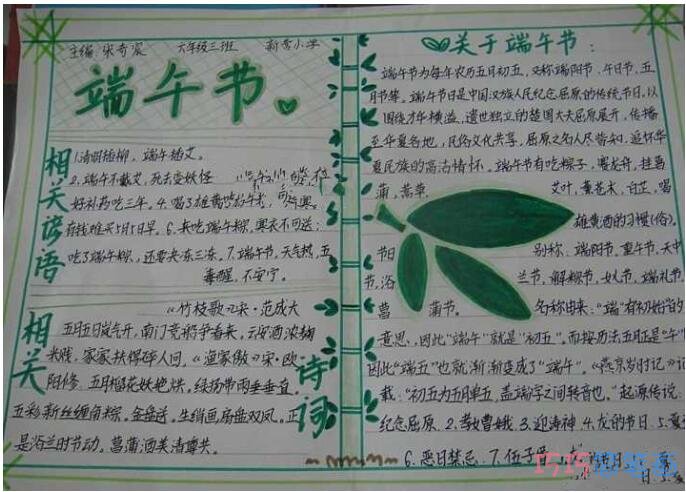 主编:宋奇宸 六年级三班 新营小学
端午节
相关谚语
1.清明插柳,端午插艾。
2.端午不戴艾,死去变妖怪
好补药吃三年。4.喝了雄黄
6.未吃端午粽,寒衣不可送;
吃了端午粽,还要冻三冻。7.端午节,天气热,五
毒醒,不安宁。
相关诗词
《竹枝歌》宋·范成大
五月五日岚气开,南门竞船争看来,云安酒浓麹
米贱,家家扶得醉人回。《渔家傲》宋·欧
阳修。五月榴花妖艳烘。绿杨带雨垂垂重。
五彩新丝缠角粽。金盘送。生绡画扇盘双凤。正
是浴兰的节动。菖蒲酒美清尊共。
关于端午节:
端午节为每年农历五月初五,又称端阳节、午日节、五
月节等。端午节日是中国汉族人民纪念屈原的传统节日,以
围绕才华横溢、遗世独立的楚国大夫屈原展开,传播
至华夏各地,民俗文化共享,屈原之名人尽皆知,追怀华
夏民族的高洁情怀。端午节有吃粽子,赛龙舟,挂菖
蒲、蒿草、艾叶,薰苍术、白芷,喝
雄黄酒的习惯(俗)。
别称:端阳节、重午节、天中
节、浴兰节、解粽节、女儿节、端礼节、
菖蒲节。名称由来:“端”有初始的
意思,因此“端午”就是“初五”。而按历法五月正是“午”
因此“端五”也就渐渐变成了“端午”。《燕京岁时记》记
载:“初五为五月单五,盖端字之间转音也。”起源传说:
纪念屈原、2.孝女曹娥、3.迎涛神、4.龙的节日、5.夏
6.恶日禁忌、7.伍子胥